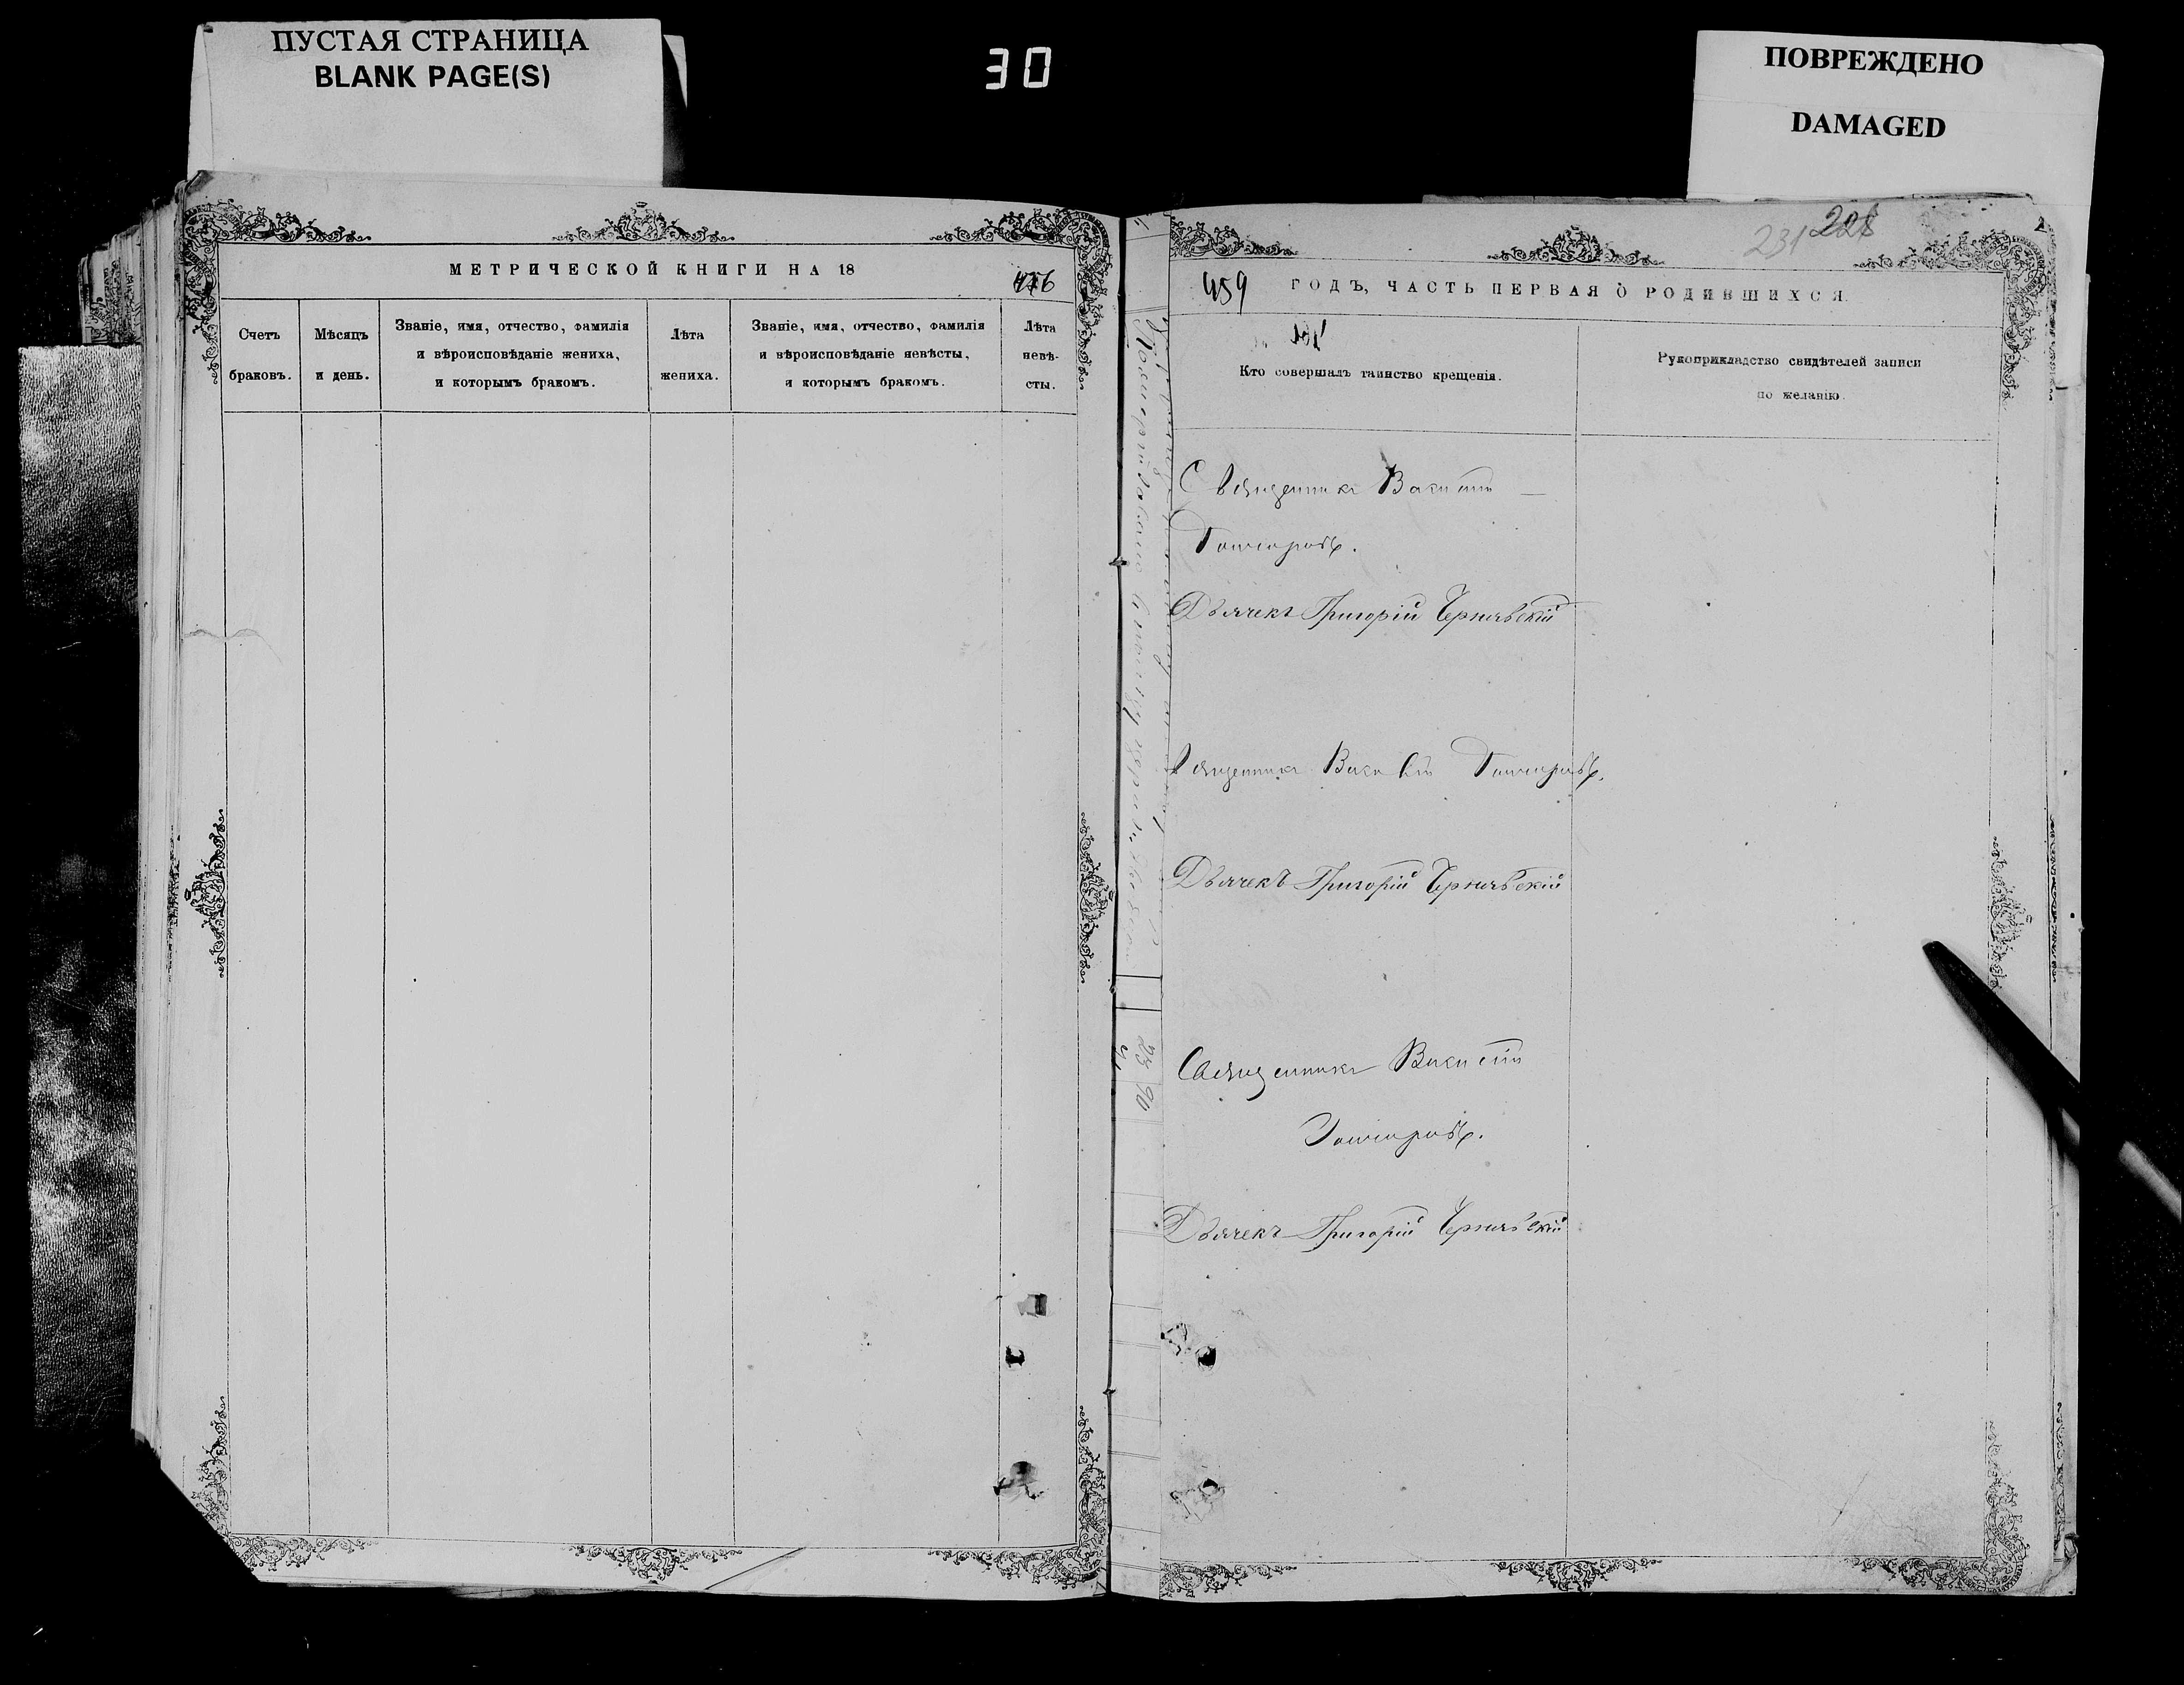 ПУСТАЯ СТРАНИЦА
BLANK PAGE(S)
30
ПОВРЕЖДЕНО
DAMAGED
МЕТРИЧЕСКОЙ КНИГИ НА 18
Счетъ браковъ.
Мѣсяцъ и день.
Званіе, имя, отчество, фамилія
и вѣроисповѣданіе жениха,
и которымъ бракомъ.
Лѣта жениха.
Званіе, имя, отчество, фамилія
и вѣроисповѣданіе невѣсты,
и которымъ бракомъ.
Лѣта
невѣ-
сты.
231
459 ГОДЪ, ЧАСТЬ ПЕРВАЯ О РОДИВШИХСЯ.
Кто совершалъ таинство крещенія.
Рукоприкладство свидѣтелей записи
по желанію.
Священникъ Василій
Гончаровъ.
Дьячекъ Григорій Чернявскій
Священникъ Василій Гончаровъ.
Дьячекъ Григорій Чернявскій
Священникъ Василій
Гончаровъ.
Дьячекъ Григорій Чернявскій